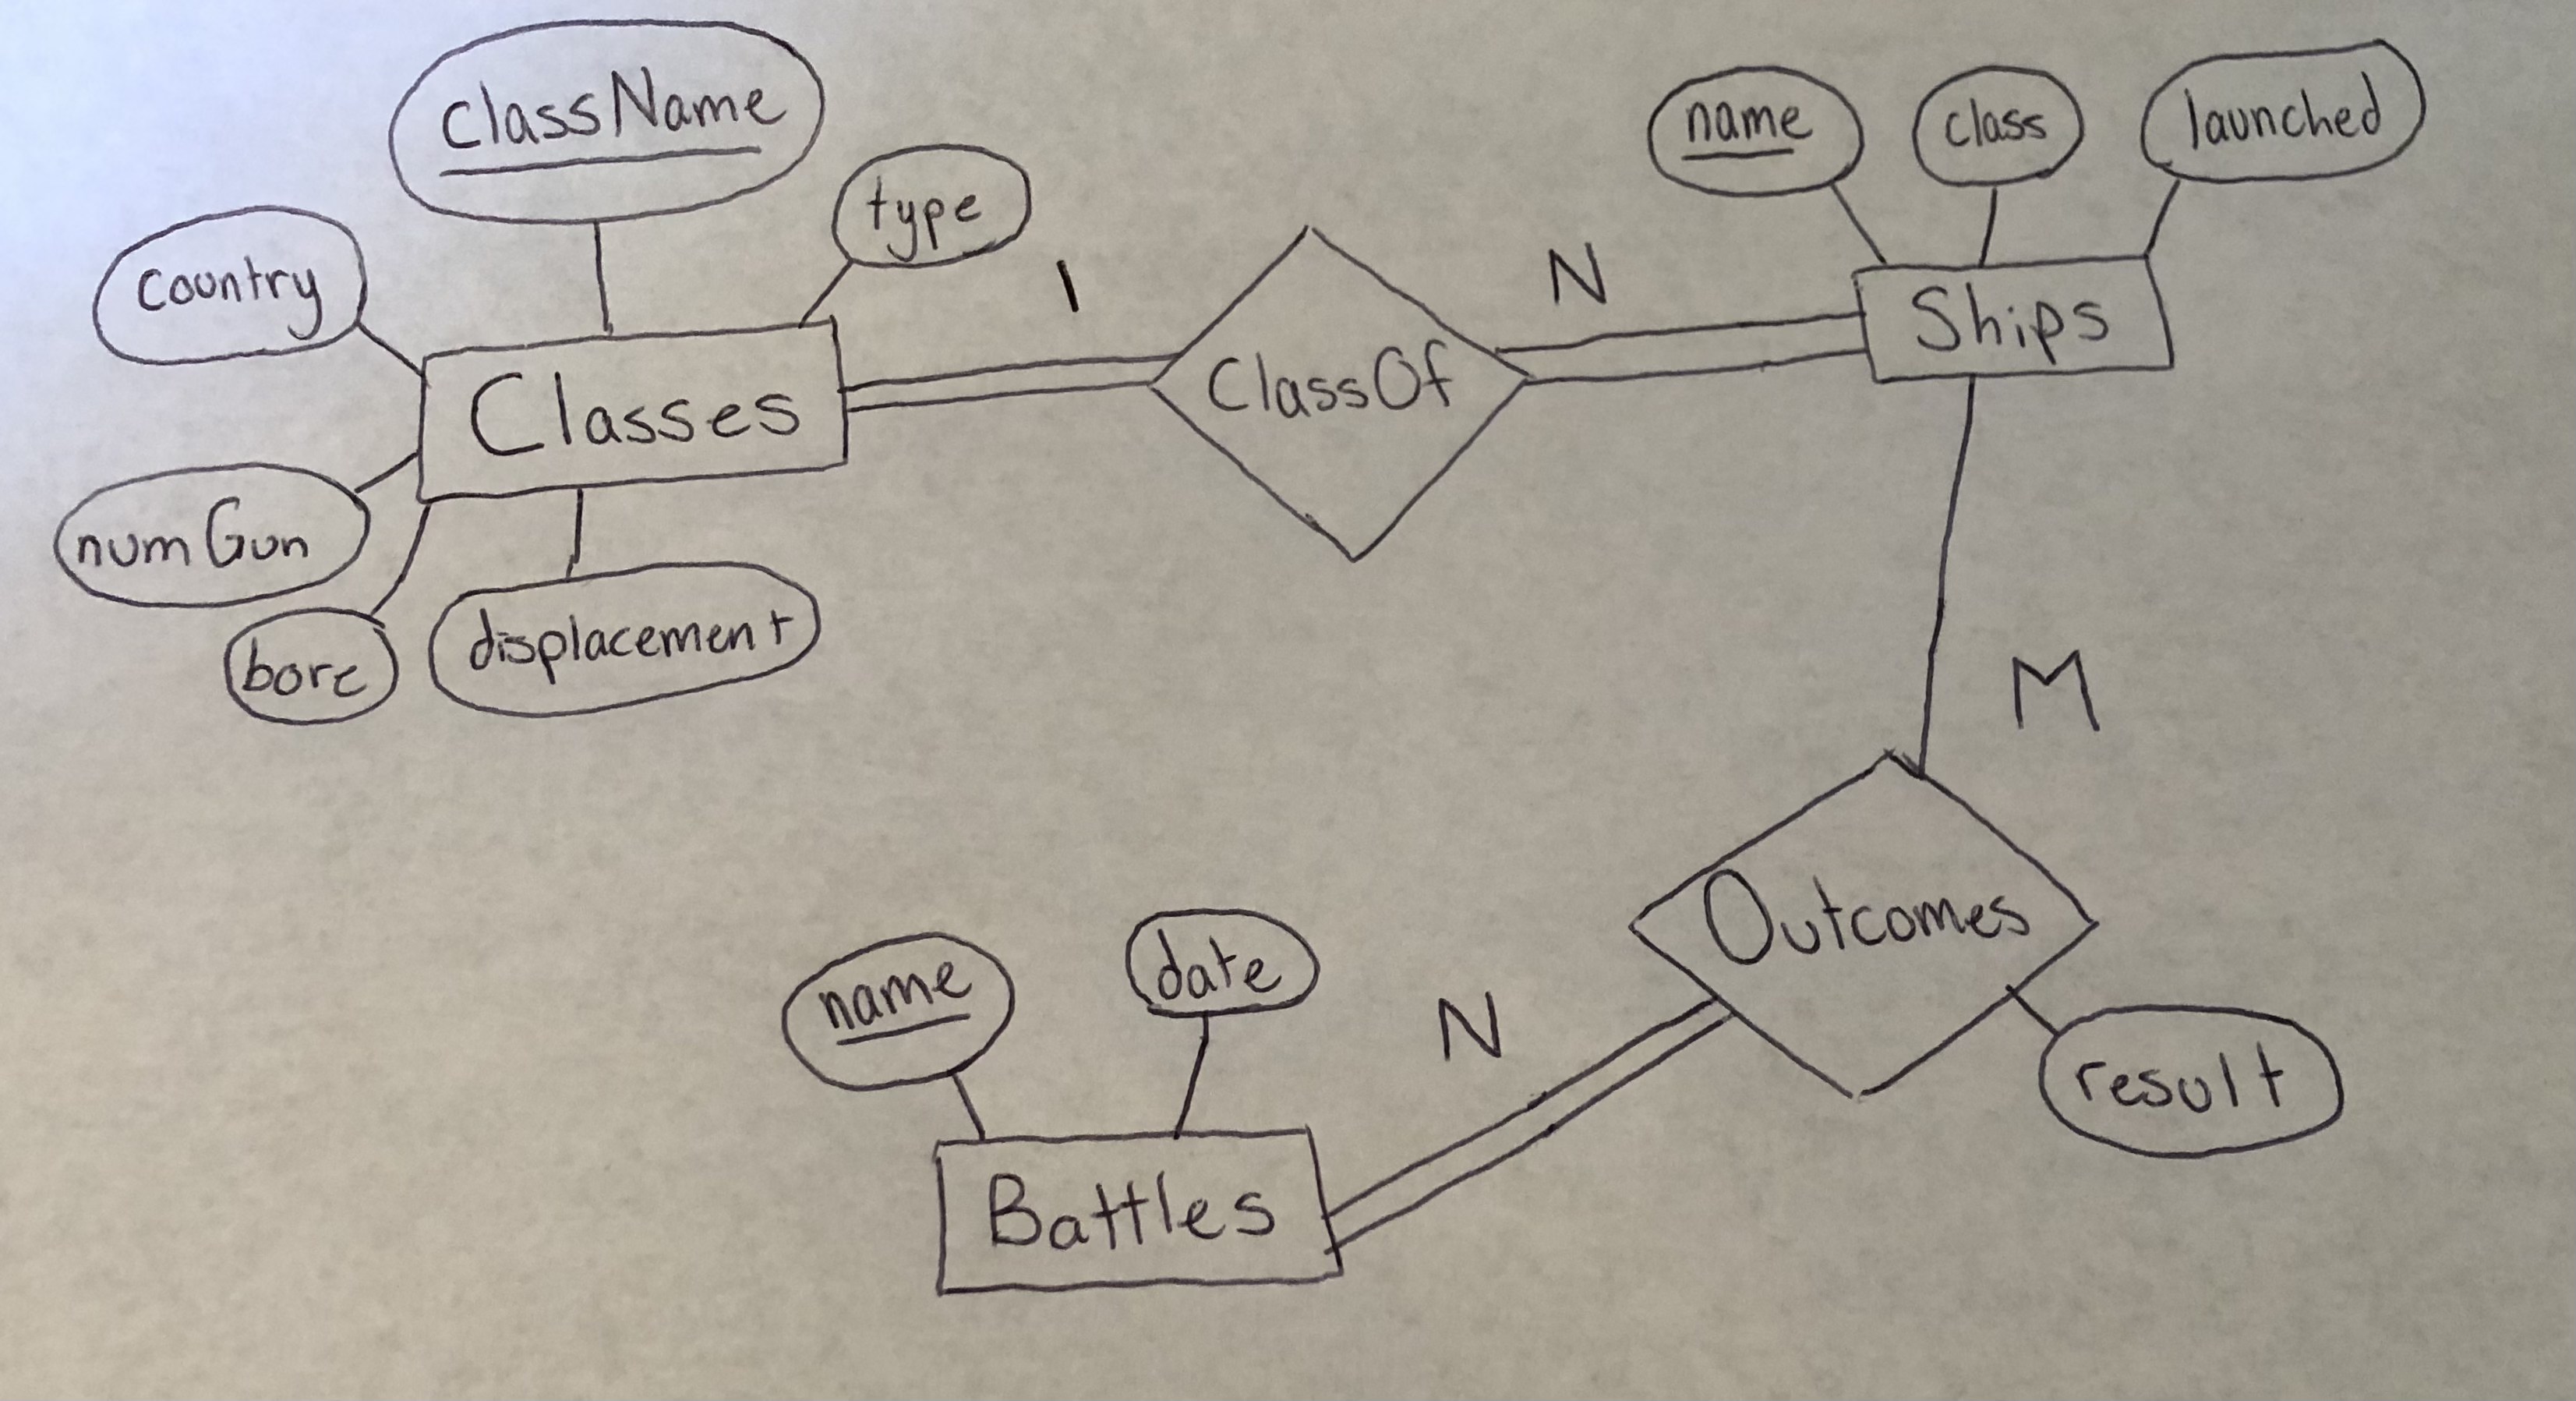 className
type
country
Classes
numGun
bore
displacement
1
ClassOf
N
name
class
launched
Ships
M
Outcomes
result
N
name
date
Battles